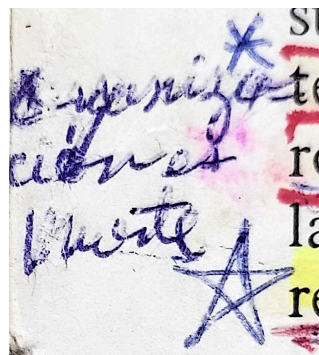 Organiza
ciones
muerte
st
te
re
la
re